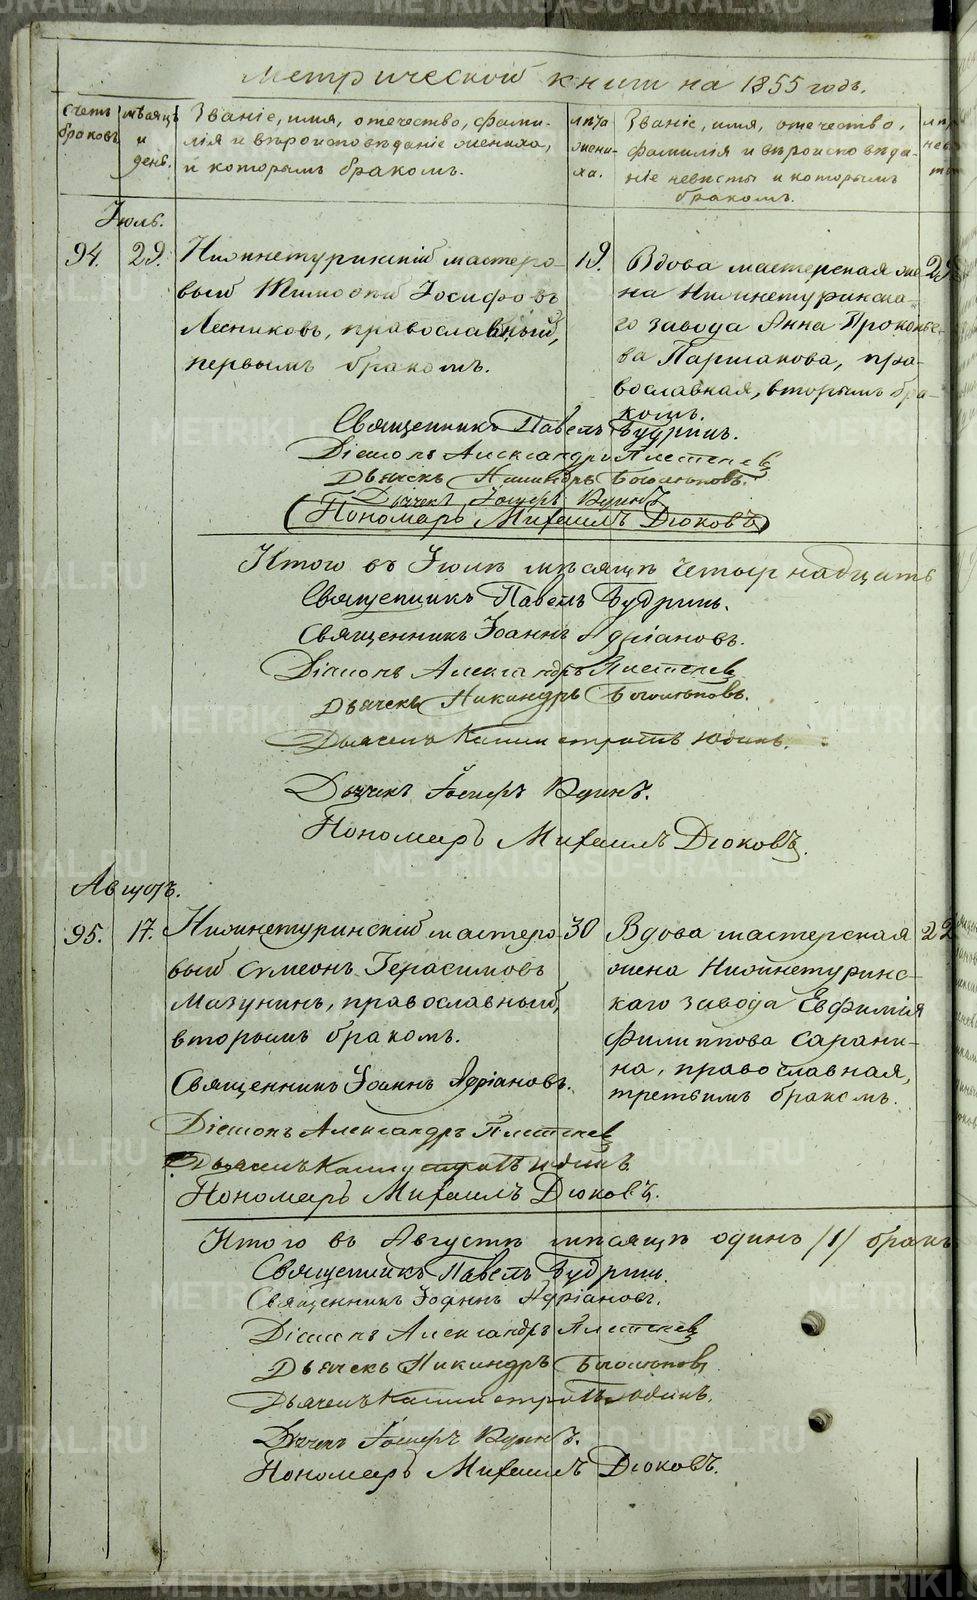 Метрической книги на 1855 годъ.
счетъ браковъ
мѣсяцъ и день.
Званіе, имя, отечество, фами-
лія и вѣроисповѣданіе жениха,
и которымъ бракомъ.
лѣта жени-
ха.
Званіе, имя, отечество,
фамилія и вѣроисповѣда-
ніе невѣсты и которымъ
бракомъ.
Іюль.
94. 29. Нижнетуринскій мастеро-
вый Тимоѳей Іосифовъ
Лесниковъ, православный,
первымъ бракомъ.
19.
Вдова мастерская же-
на Нижнетуринска-
го завода Анна Прокопье-
ва Паршакова, пра-
вославная, вторымъ бра-
комъ.
29
Священникъ Павелъ Будринъ.
Діаконъ Александръ Плетенев
Дьячекъ Никандръ Боголюповъ.
Дьячекъ Іосифъ Юдинъ
Пономарь Михаилъ Дюковъ
Итого въ Іюлѣ мѣсяцѣ четырнадцать
Священникъ Павелъ Будринъ.
Священникъ Іоаннъ Адріановъ.
Діаконъ Александръ Плетенев
Дьячекъ Никандръ Боголюповъ.
Дьячекъ Каллистратъ Юдинъ.
Дьячекъ Іосифъ Юдинъ.
Пономарь Михаилъ Дюковъ.
Августъ.
95. 17. Нижнетуринскій мастеро-
вый Симеонъ Герасимовъ
Мазунинъ, православный,
вторымъ бракомъ.
30
Вдова мастерская
жена Нижнетуринс-
каго завода Евфимія
Филиппова Сарани-
на, православная,
третьимъ бракомъ.
22
Священникъ Іоаннъ Адріановъ.
Діаконъ Александръ Плетенев
Дьячекъ Каллистратъ Юдинъ
Пономарь Михаилъ Дюковъ.
Итого въ Августѣ мѣсяцѣ одинъ /1/ бракъ
Священникъ Павелъ Будринъ.
Священникъ Іоаннъ Адріановъ.
Діаконъ Александръ Плетенев
Дьячекъ Никандръ Боголюповъ
Дьячекъ Каллистратъ Юдинъ.
Дьячекъ Іосифъ Юдинъ.
Пономарь Михаилъ Дюковъ.
METRIKI.GASO-URAL.RU